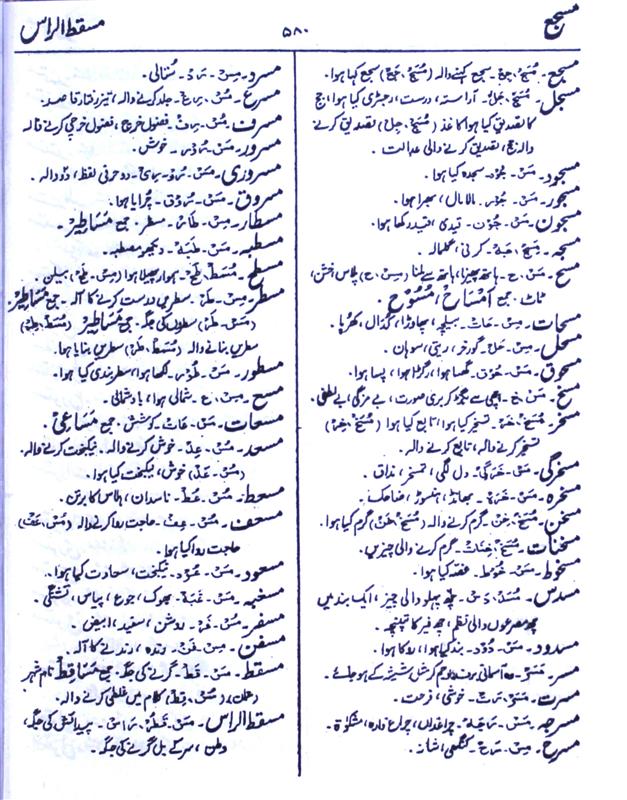 مسجع
۵۸۰
مسقط الراس
مسجع۔ مُسَج٘۔جِع۔ سجع کہنے والہ (مُسَج٘۔جَع) سجع کہا ہوا۔
مسجل۔ مُسَج٘۔جَل۔ آراستہ، درست، رجسٹری کیا ہوا، جج
کا تصدیق کیا ہوا کاغذ (مُسَج٘۔جِل) تصدیق کرنے
والہ جج، تصدیق کرنے والی عدالت۔
مسجود۔ مَس٘۔جُو٘د۔ سجدہ کیا ہوا۔
مسجور۔ مَس٘۔جُو٘ر۔ مالامال، بھرا ہوا۔
مسجون۔ مَس٘۔جُو٘ن۔ قیدی، قید رکھا ہوا۔
مسجہ۔ کرنی، گلمالہ۔
مسح۔ مَس٘۔ح۔ ہاتھ پھیرنا، ہاتھ سے ملنا (مِس٘۔ح) پلاس، خشن،
ٹاٹ۔ جمع اَمْسَاحْ، مُسُوْحْ۔
مسحات۔ مِس٘۔حَات۔ بیلچہ، پھاوڑا، کدال، کھرپا۔
مسحل۔ مِس٘۔حَل۔ گورخر، ریتی، سوہان۔
مسحوق۔ مَس٘۔حُو٘ق۔ گھسا ہوا، رگڑا ہوا، پسا ہوا۔
مسخ۔ مَس٘۔خ۔ اچھی سے بگڑ کر بری صورت، بے مزگی، بے لطفی۔
مسخر۔ مُسَخ٘۔خَر۔ تسخیر کیا ہوا، تابع کیا ہوا (مُسَخ٘۔خِر)
تسخیر کرنے والہ، تابع کرنے والہ۔
مسخرگی۔ مَس٘۔خَرَگی۔ دل لگی، تمسخر، مذاق۔
مسخرہ۔ مَس٘۔خَرَہ۔ بھانڈ، ہنسوڑ، ضاحک۔
مسخن۔ مُسَخ٘۔خِن۔ گرم کرنے والہ (مُسَخ٘۔خَن) گرم کیا ہوا۔
مسخنات۔ مُسَخ٘۔خِنَات۔ گرم کرنے والی چیزیں۔
مسخوط۔ مَس٘۔خُو٘ط۔ غصہ کیا ہوا۔
مسدس۔ مُسَد٘۔دَس۔ چھ پہلو والی چیز، ایک بند میں
چھ مصرعوں والی نظم، چھ فیر کا تپنچہ۔
مسدود۔ مَس٘۔دُو٘د۔ بند کیا ہوا، روکا ہوا۔
مسر۔ وہ آسمانی برف جو جم کر مثل شیشہ کے ہو جائے۔
مسرت۔ مَسَر٘۔رَت۔ خوشی، فرحت۔
مسرجہ۔ مَس٘۔رَجَہ۔ چراغداں، چراغ دارہ، مشکوٰۃ۔
مسرح۔ مِس٘۔رَح۔ کنگھی، شانہ۔
مسرد۔ مِس٘۔رَد۔ سُتالی۔
مسرع۔ مُس٘۔رِع۔ جلد کرنے والہ، تیز رفتار قاصد۔
مسرف۔ مُس٘۔رِف۔ فضول خرچ، فضول خرچی کرنے والہ
مسرور۔ مَس٘۔رُو٘ر۔ خوش۔
مسروری۔ دو حرفی لفظ، دُو دالہ۔
مسروق۔ مَس٘۔رُو٘ق۔ چُرایا ہوا۔
مسطار۔ مِس٘۔طَار۔ مسطر۔ جمع مَسَاطِیْرْ۔
مسطبہ۔ مَس٘۔طَبَہ۔ دیکھو مصطبہ۔
مسطح۔ مُسَط٘۔طَح۔ ہموار پھیلا ہوا (مِس٘۔طَح) بیلن۔
مسطر۔ مِس٘۔طَر۔ سطریں درست کرنے کا آلہ۔ جمع مَسَاطِیْرْ۔
(مَس٘۔طَر) سطروں کی جگہ۔ جمع مَسَاطِیْرْ (مُسَط٘۔طِر)
سطریں بنانے والہ (مُسَط٘۔طَر) سطریں بنایا ہوا۔
مسطور۔ مَس٘۔طُو٘ر۔ لکھا ہوا، سطر بندی کیا ہوا۔
مسع۔ مِس٘۔ع۔ شمالی ہوا، باد شمالی۔
مسعات۔ مَس٘۔عَات۔ کوشش۔ جمع مَسَاعِیْ۔
مسعد۔ مُس٘۔عِد۔ خوش کرنے والہ۔ نیکبخت کرنے والہ۔
(مُس٘۔عَد) خوش، نیکبخت کیا ہوا۔
مسعط۔ مُس٘۔عُط۔ ناسدان، ہلاس کا برتن۔
مسعف۔ مُس٘۔عِف۔ حاجت روا کرنے والہ (مُس٘۔عَف)
حاجت روا کیا ہوا۔
مسعود۔ مَس٘۔عُو٘د۔ نیکبخت، سعادت کیا ہوا۔
مسغبہ۔ مَس٘۔غَبَہ۔ بھوک، جوع، پیاس، تشنگی۔
مسفر۔ روشن، سفید، ابیض۔
مسفن۔ مِس٘۔فَن۔ رندہ، رندنے کا آلہ۔
مسقط۔ مَس٘۔قَط۔ گرنے کی جگہ۔ جمع مَسَاقِطْ نام شہر
(مُس٘۔قِط) کلام میں غلطی کرنے والہ۔
مسقط الراس۔ مَس٘۔قَطُر٘۔رَاس۔ پیدائش کی جگہ،
وطن، سر کے بل گرنے کی جگہ۔